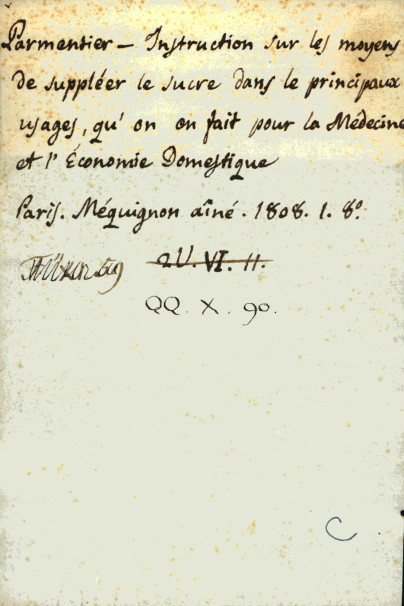 Parmentier – Instruction sur les moyens
de suppléer le sucre dans le principaux
usages, qu'on en fait pour la Médecine
et l'Économie Domestique
Paris. Méquignon aîné. 1808. 1. 8º.
VI. 11.
QQ. X. 90.
C